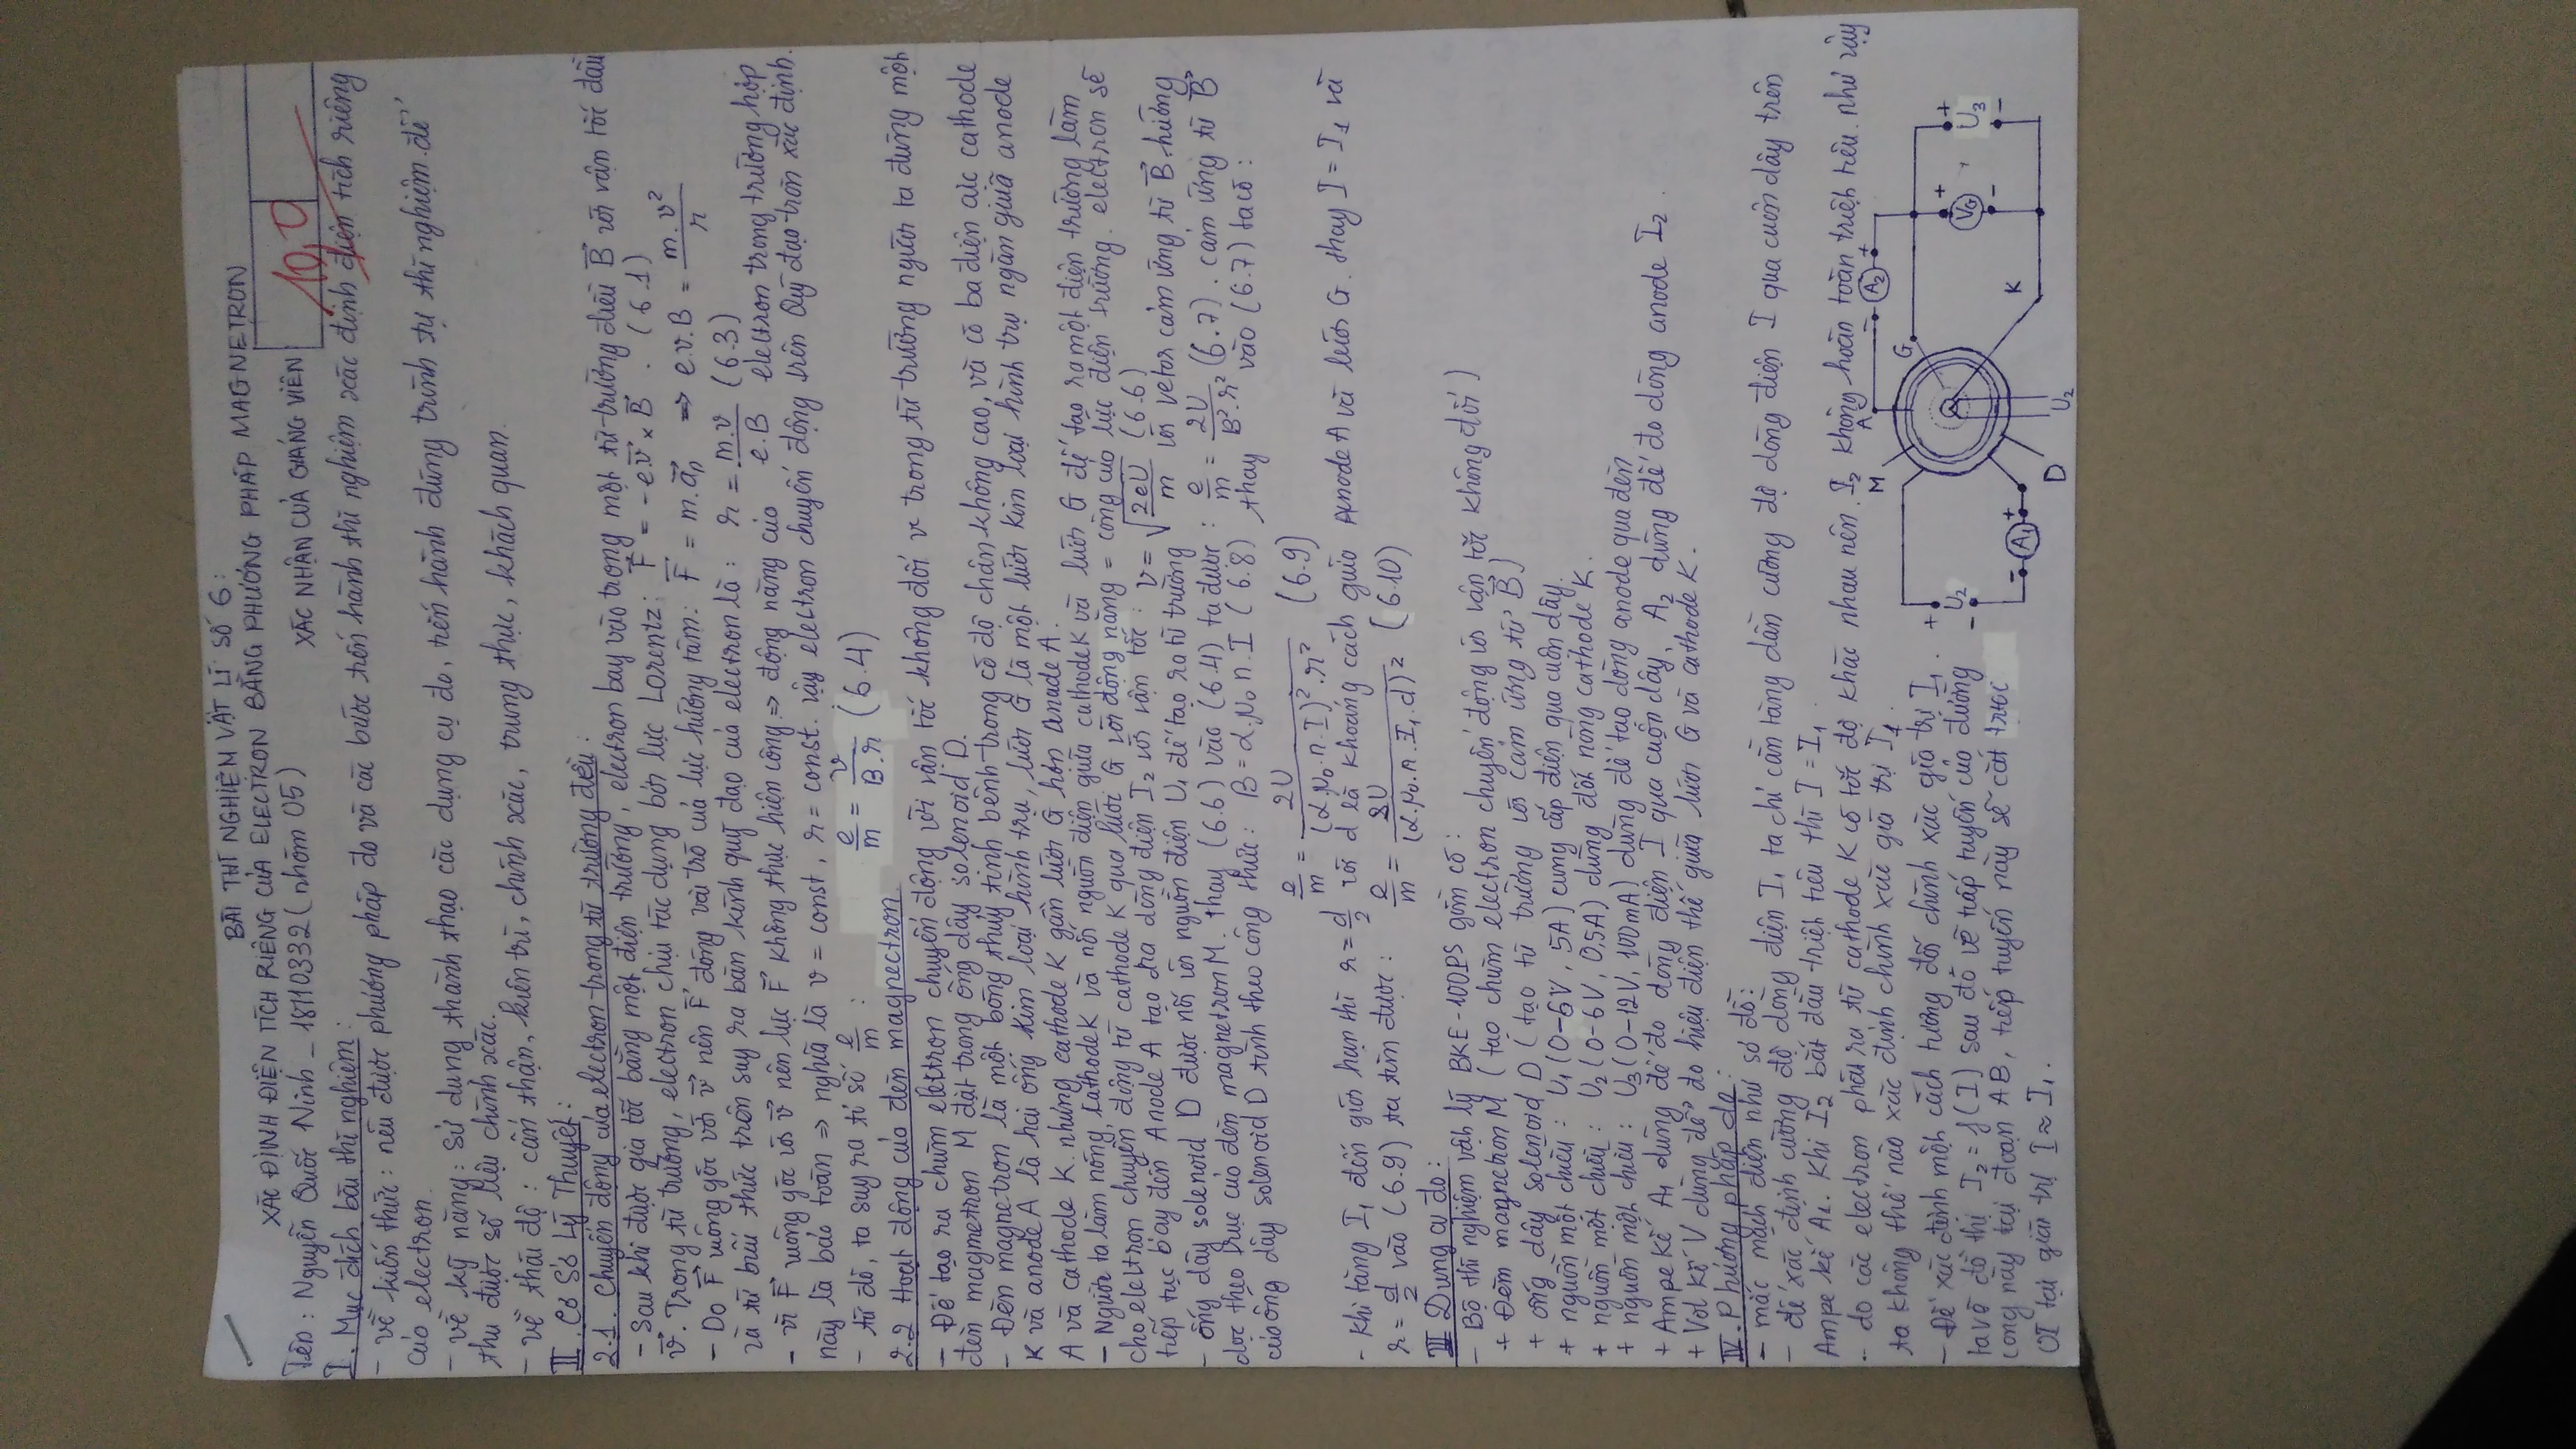 BÀI THÍ NGHIỆM VẬT LÍ SỐ 6:
XÁC ĐỊNH ĐIỆN TÍCH RIÊNG CỦA ELECTRON BẰNG PHƯƠNG PHÁP MAGNETRON
Tên: Nguyễn Quốc Ninh - 18110332 (nhóm 05) XÁC NHẬN CỦA GIẢNG VIÊN 10,0
I. Mục đích bài thí nghiệm:
- về kiến thức: nêu được phương pháp đo và các bước tiến hành thí nghiệm xác định điện tích riêng
của electron.
- về kỹ năng: sử dụng thành thạo các dụng cụ đo, tiến hành đúng trình tự thí nghiệm để
thu được số liệu chính xác.
- về thái độ: cẩn thận, kiên trì, chính xác, trung thực, khách quan.
II. Cơ Sở Lý Thuyết:
2.1. Chuyển động của electron trong từ trường đều:
- Sau khi được gia tốc bằng một điện trường, electron bay vào trong một từ trường điều B⃗ với vận tốc đầu
v⃗. Trong từ trường, electron chịu tác dụng bởi lực Lorentz: F⃗ = -e.v⃗ x B⃗. (6.1)
- Do F⃗ vuông góc với v⃗ nên F⃗ đóng vai trò của lực hướng tâm: F⃗ = m.a⃗n => e.v.B = m.v²/r
và từ biểu thức trên suy ra bán kính quỹ đạo của electron là: r = m.v/e.B (6.3)
- vì F⃗ vuông góc với v⃗ nên lực F⃗ không thực hiện công => động năng của electron trong trường hợp
này là bảo toàn => nghĩa là v = const, r = const. vậy electron chuyển động trên Quỹ đạo tròn xác định.
- từ đó, ta suy ra tỉ số e/m : e/m = v/B.r (6.4)
2.2 Hoạt động của đèn magnectron.
- Để tạo ra chùm electron chuyển động với vận tốc không đổi v trong từ trường người ta dùng một
đèn magmetron M đặt trong ống dây solenoid D.
- Đèn magnetron là một bóng thủy tinh bênh trong có độ chân không cao, và có ba điện cực cathode
K và anode A là hai ống kim loại hình trụ, lưới G là một lưới kim loại hình trụ ngăn giữa anode
A và cathode K. nhưng cathode K gần lưới G hơn anade A.
- Người ta làm nóng cathode K và nối nguồn điện giữa cathode K và lưới G để tạo ra một điện trường làm
cho electron chuyển động từ cathode K qua lưới G với động năng = công của lực điện trường. electron sẽ
tiếp tục bay đến Anode A tạo ra dòng điện I₂ với vận tốc: v = √(2eU/m) (6.6)
- ống dây solenoid D được nối với nguồn điện U₁ để tạo ra từ trường với vetor cảm ứng từ B⃗ hướng
dọc theo trục của đèn magnetron M. thay (6.6) vào (6.4) ta được: e/m = 2U/B².r² (6.7). cảm ứng từ B⃗
của ống dây solenoid D tính theo công thức: B = α.μ₀ n.I (6.8) thay vào (6.7) ta có:
e/m = 2U/(α.μ₀.n.I)².r² (6.9)
- khi tăng I₁ đến giới hạn thì r = d/2 với d là khoảng cách giữa Anode A và lưới G. thay I = I₁ và
r = d/2 vào (6.9) ta tìm được: e/m = 8U/(α.μ₀.n.I₁.d)² (6.10)
III Dụng cụ đo:
- Bộ thí nghiệm vật lý BKE-100PS gồm có:
+ Đèm magnetron M (tạo chùm electron chuyển động với vận tốc không đổi)
+ ống dây solenoid D (tạo từ trường với cảm ứng từ B⃗)
+ nguồn một chiều: U₁ (0-6V, 5A) cung cấp điện qua cuộn dây.
+ nguồn một chiều: U₂ (0-6V, 0,5A) dùng đốt nóng cathode K.
+ nguồn một chiều: U₃ (0-12V, 100mA) dùng để tạo dòng anode qua đèn
+ Ampe kế A₁ dùng để đo dòng điện I qua cuộn dây, A₂ dùng để đo dòng anode I₂.
+ Vol kế V dùng để đo hiệu điện thế giữa lưới G và cathode K.
IV. Phương pháp đo:
- mắc mạch điện như sơ đồ:
- để xác định cường độ dòng điện I₁ ta chỉ cần tăng dần cường độ dòng điện I qua cuộn dây trên
Ampe kế A₁. Khi I₂ bắt đầu triệt tiêu thì I = I₁.
- do các electron phát ra từ cathode K có tốc độ khác nhau nên I₂ không hoàn toàn triệt tiêu. như vậy
ta không thể nào xác định chính xác giá trị I₁.
- Để xác định một cách tương đối chính xác giá trị I₁
ta vẽ đồ thị I₂ = f(I) sau đó vẽ tiếp tuyến của đường
cong này tại đoạn AB, tiếp tuyến này sẽ cắt trục
OI tại giá trị I ≈ I₁.
M A - A₂ +
G
+ U₂ -
+ V_G -
+ U₃ -
- A₁ +
K
D U₂